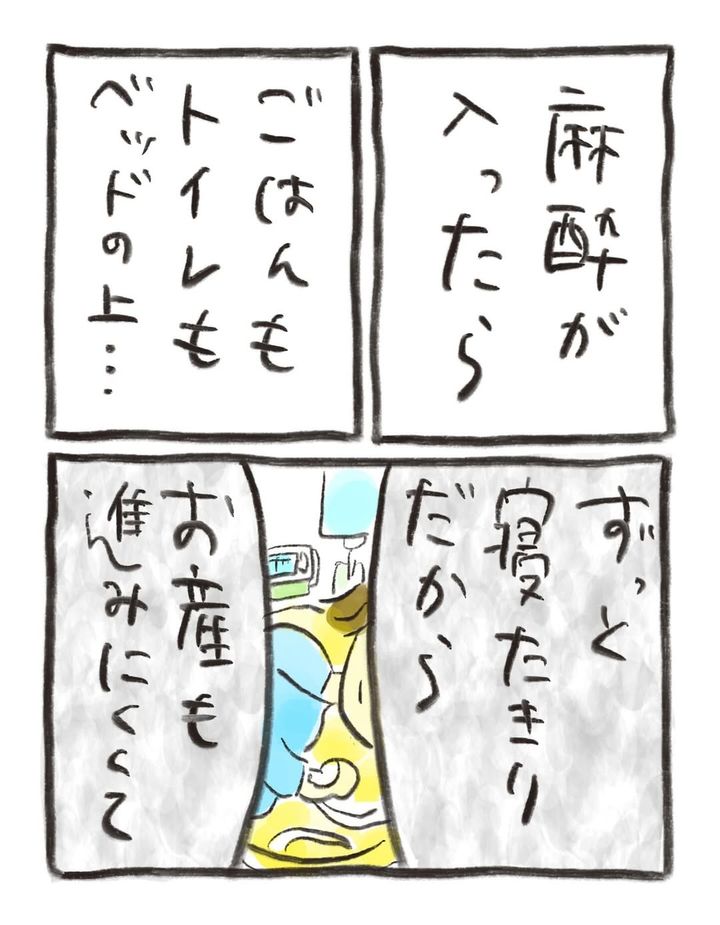 麻酔が
入ったら
ごはんも
トイレも
ベッドの上…
ずっと
寝たきり
だから
お産も
進みにくくて